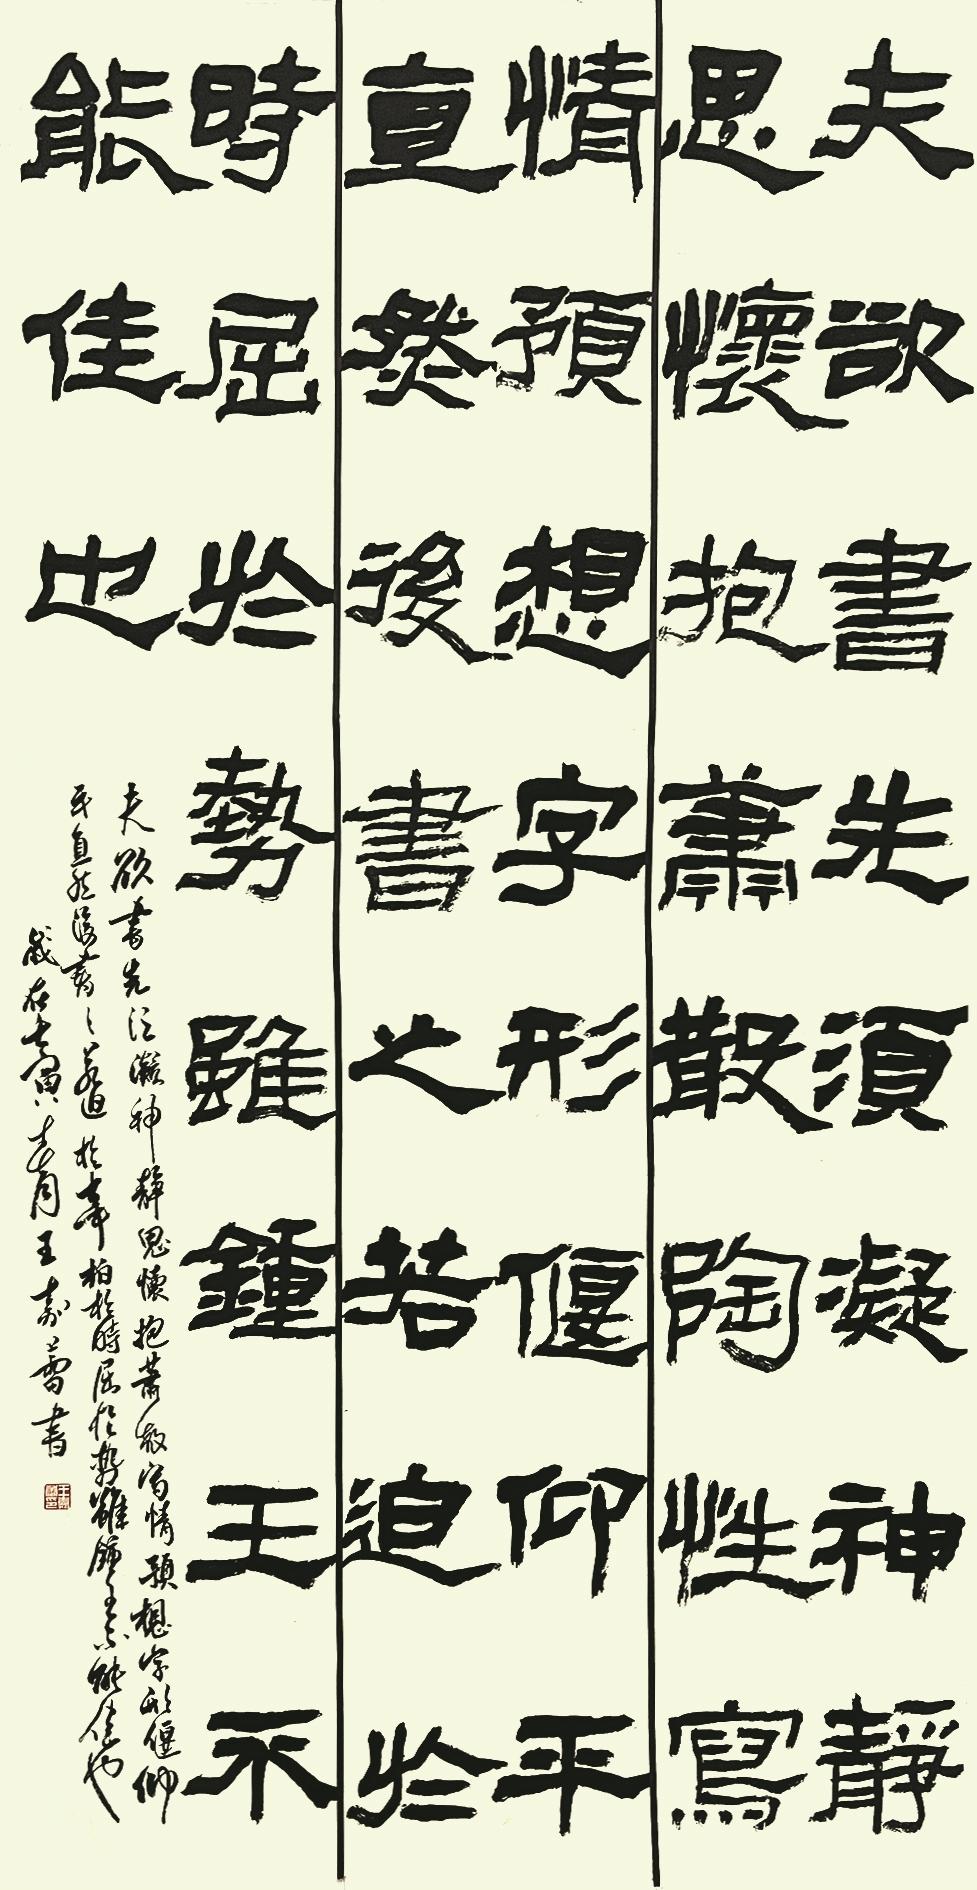 夫欲書先須凝神靜
思懷抱蕭散陶性寫
情預想字形偃仰平
直然後書之若迫於
時屈於勢雖鍾王不
能佳也
夫欲書先須凝神靜思懷抱蕭散寫情預想字形偃仰
平直然後書之若迫於事拘於時屈於勢雖鍾王不能佳也
歲在壬寅春月王書